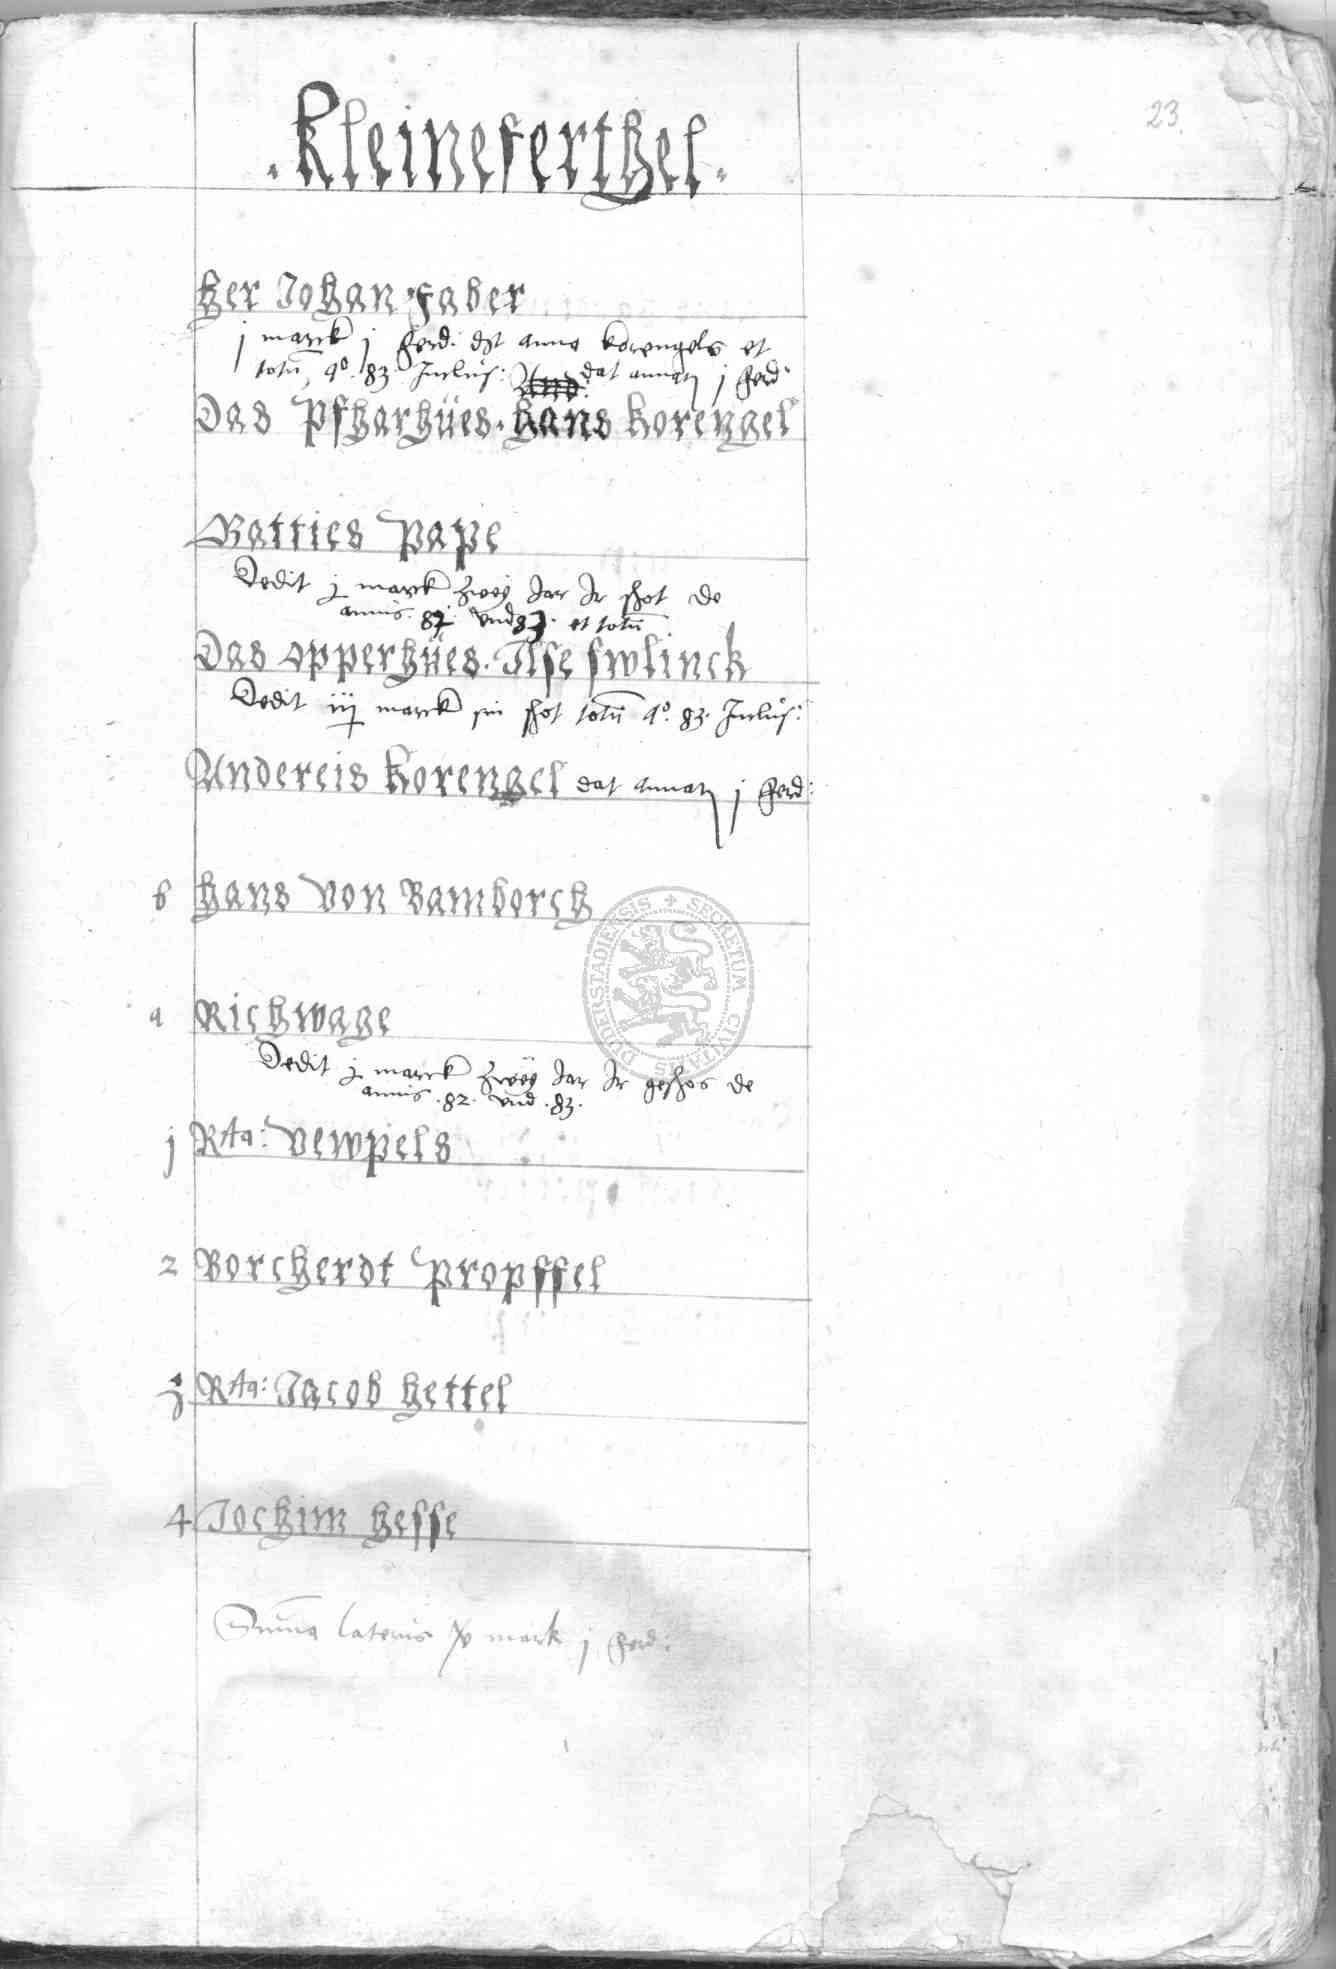 23.
. Kleineferthel .
Her Johan Faber
j marck j ferd: dt anna korengels et
totu aº. 83. Inclus: dat annatj j ferd:
Das Pfharhües . Hans Korengel
Matties Pape
Dedit j marck zweÿ Jar Jr schot de
annis . 82 . vnd 83 . et totu
Das opperhües . Ilse swlinck
Dedit iij marck sin schot totu aº. 83. Inclus:
Andereis Korengel dat annatj j ferd:
6 Hans Von Bamborch
a Richwage
Dedit j marck zweÿ Jar Jr geschos de
annis . 82 . vnd . 83 .
j Rta: Vewpels
2 Borcherdt Propffel
j Rta: Jacob Hettel
4 Jochim Hesse
Summa lateris marck j ferd:
SECRETUM CIVITATIS DUDERSTADIENSIS